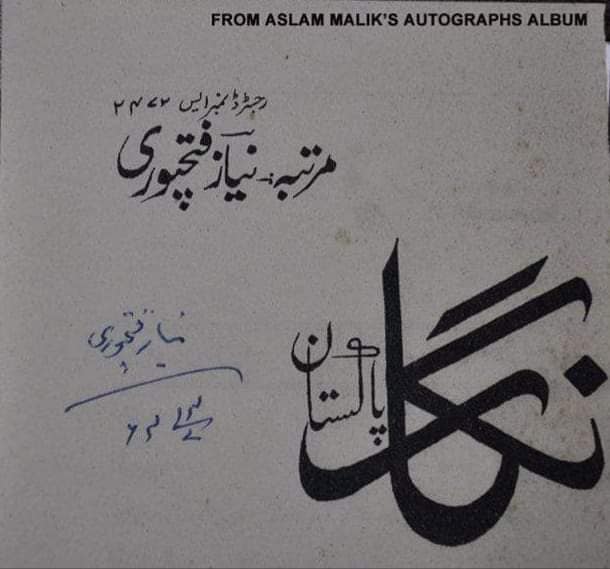 FROM ASLAM MALIK'S AUTOGRAPHS ALBUM
رجسٹرڈ نمبر ایس ۲۴۷۲
مرتبہ:۔ نیاز فتحپوری
نگار
پاکستان
نیاز فتحپوری